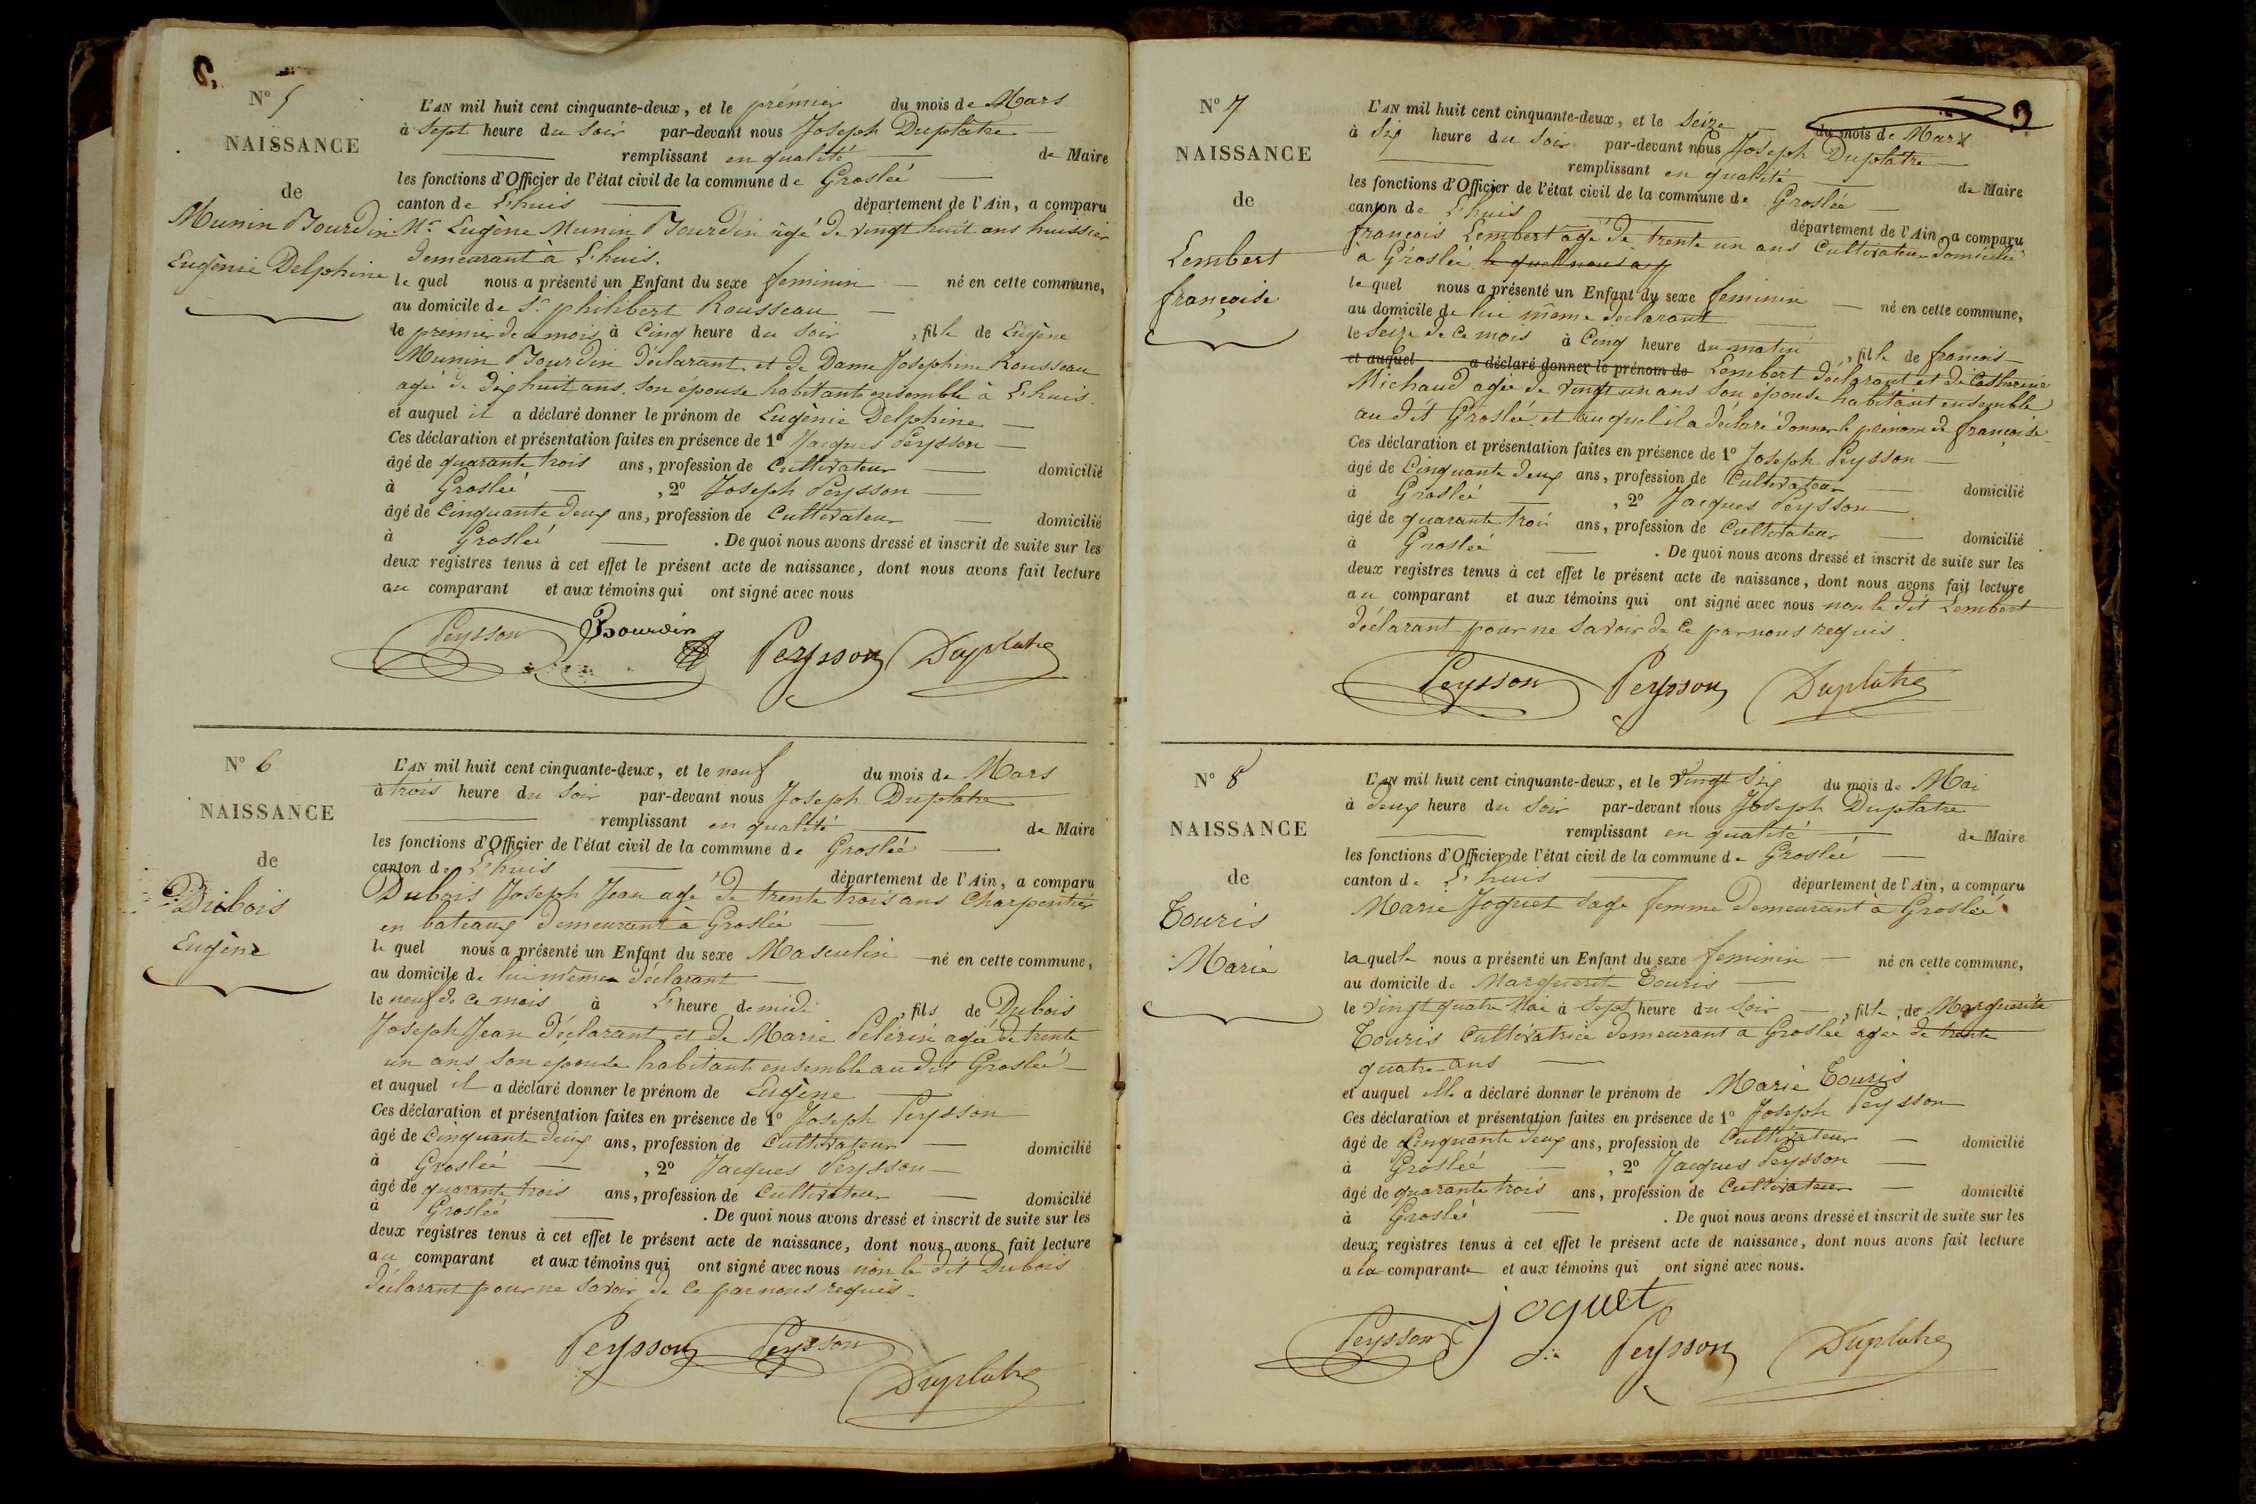 N° 5
NAISSANCE
de
Munin Bourdin
Eugènie Delphine
L'AN mil huit cent cinquante-deux, et le prémier du mois de Mars
à sept heure du soir par-devant nous Joseph Duplatre
remplissant en qualité de Maire
les fonctions d'Officier de l'état civil de la commune de Groslée
canton de L'huis département de l'Ain, a comparu
Mr Eugène Munin Bourdin âgé de vingt huit ans huissier
demeurant à L'huis.
le quel nous a présenté un Enfant du sexe feminin né en cette commune,
au domicile de Sr philibert Rousseau
le premier de ce mois à Cinq heure du soir, fille de Eugène
Munin Bourdin déclarant, et de Dame Josephine Rousseau
agée de dix huit ans. son épouse habitants ensemble à L'huis.
et auquel il a déclaré donner le prénom de Eugènie Delphine
Ces déclaration et présentation faites en présence de 1° Jacques Peysson
âgé de quarante trois ans, profession de Cultivateur domicilié
à Groslée, 2° Joseph Peysson
âgé de Cinquante deux ans, profession de Cultivateur domicilié
à Groslée. De quoi nous avons dressé et inscrit de suite sur les
deux registres tenus à cet effet le présent acte de naissance, dont nous avons fait lecture
au comparant et aux témoins qui ont signé avec nous
Peysson Bourdin Peysson Duplatre
N° 6
NAISSANCE
de
Dubois
Eugène
L'AN mil huit cent cinquante-deux, et le neuf du mois de Mars
à trois heure du soir par-devant nous Joseph Duplatre
remplissant en qualité de Maire
les fonctions d'Officier de l'état civil de la commune de Groslée
canton de L'huis département de l'Ain, a comparu
Dubois Joseph Jean agé de trente trois ans Charpentier
en bateaux demeurant à Groslée
le quel nous a présenté un Enfant du sexe Masculin né en cette commune,
au domicile de lui même déclarant
le neuf de ce mois à L'heure de midi, fils de Dubois
Joseph Jean déclarant, et de Marie Pélérin agée de trente
un ans son épouse habitants ensemble au dit Groslée
et auquel il a déclaré donner le prénom de Eugène
Ces déclaration et présentation faites en présence de 1° Joseph Peysson
âgé de Cinquante deux ans, profession de Cultivateur domicilié
à Groslée, 2° Jacques Peysson
âgé de quarante trois ans, profession de Cultivateur domicilié
à Groslée. De quoi nous avons dressé et inscrit de suite sur les
deux registres tenus à cet effet le présent acte de naissance, dont nous avons fait lecture
au comparant et aux témoins qui ont signé avec nous non le dit Dubois
déclarant pour ne savoir de ce par nous requis.
Peysson Peysson
Duplatre
N° 7
NAISSANCE
de
Lembert
françoise
L'AN mil huit cent cinquante-deux, et le Seize du mois de Mars
à Six heure du soir par-devant nous Joseph Duplatre
remplissant en qualité de Maire
les fonctions d'Officier de l'état civil de la commune de Groslée
canton de L'huis département de l'Ain, a comparu
françois Lembert agé de trente un ans Cultivateur domicilié
à Groslée le quel nous a
le quel nous a présenté un Enfant du sexe feminin né en cette commune,
au domicile de lui même déclarant
le Seize de ce mois à Cinq heure du matin, fille de françois
et auquel a déclaré donner le prénom de Lembert déclarant et de Catherine
Michaud agée de vingt un ans son épouse habitant ensemble
au dit Groslée. et auquel il a déclaré donner le prénom de françoise
Ces déclaration et présentation faites en présence de 1° Joseph Peysson
âgé de Cinquante deux ans, profession de Cultivateur domicilié
à Groslée, 2° Jacques Peysson
âgé de quarante trois ans, profession de Cultivateur domicilié
à Groslée. De quoi nous avons dressé et inscrit de suite sur les
deux registres tenus à cet effet le présent acte de naissance, dont nous avons fait lecture
au comparant et aux témoins qui ont signé avec nous non le dit Lembert
déclarant pour ne savoir de ce par nous requis.
Peysson Peysson Duplatre
N° 8
NAISSANCE
de
Touris
Marie
L'AN mil huit cent cinquante-deux, et le Vingt Six du mois de Mai
à deux heure du soir par-devant nous Joseph Duplatre
remplissant en qualité de Maire
les fonctions d'Officier de l'état civil de la commune de Groslée
canton de L'huis département de l'Ain, a comparu
Marie Joguet sage femme demeurant à Groslée
laquelle nous a présenté un Enfant du sexe feminin né en cette commune,
au domicile de Marguerite Touris
le vingt quatre Mai à sept heure du soir, fille de Marguerite
Touris Cultivatrice demeurant a Groslée agée de trente
quatre ans
et auquel elle a déclaré donner le prénom de Marie Touris
Ces déclaration et présentation faites en présence de 1° Joseph Peysson
âgé de Cinquante deux ans, profession de Cultivateur domicilié
à Groslée, 2° Jacques Peysson
âgé de quarante trois ans, profession de Cultivateur domicilié
à Groslée. De quoi nous avons dressé et inscrit de suite sur les
deux registres tenus à cet effet le présent acte de naissance, dont nous avons fait lecture
a la comparante et aux témoins qui ont signé avec nous.
joguet
Peysson Peysson Duplatre